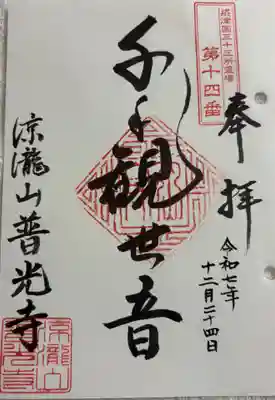 摂津国三十三所霊場
第十四番
奉拝
令和七年
十二月二十四日
千手観世音
涼瀧山普光寺